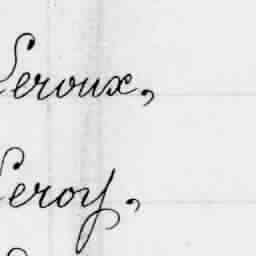 Leroux,
Leroy,